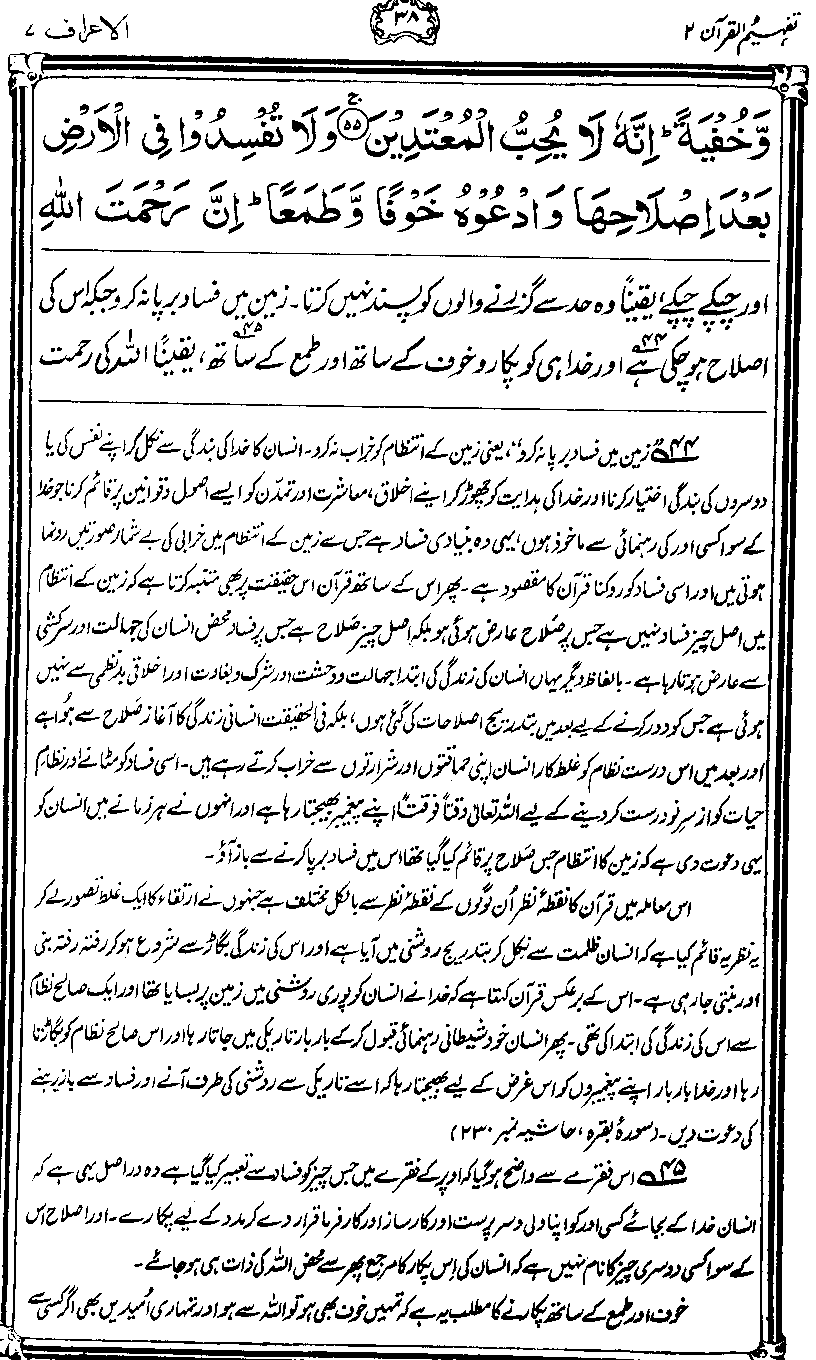 تفہیم القرآن ۲
۳۸
الاعراف ۷
وَّخُفْيَةً ؕ اِنَّهٗ لَا يُحِبُّ الْمُعْتَدِيْنَ ۵۵ ج وَلَا تُفْسِدُوْا فِى الْاَرْضِ
بَعْدَ اِصْلَاحِهَا وَادْعُوْهُ خَوْفًا وَّطَمَعًا ؕ اِنَّ رَحْمَتَ اللّٰهِ
اور چپکے چپکے، یقیناً وہ حد سے گزرنے والوں کو پسند نہیں کرتا۔ زمین میں فساد برپا نہ کرو جبکہ اس کی
اصلاح ہو چکی ہے ۴۴ اور خدا ہی کو پکارو خوف کے ساتھ اور طمع کے ساتھ ۴۵، یقیناً اللہ کی رحمت
۴۴ ”زمین میں فساد برپا نہ کرو“، یعنی زمین کے انتظام کو خراب نہ کرو۔ انسان کا خدا کی بندگی سے نکل کر اپنے نفس کی یا
دوسروں کی بندگی اختیار کرنا اور خدا کی ہدایت کو چھوڑ کر اپنے اخلاق، معاشرت اور تمدّن کو ایسے اصول و قوانین پر قائم کرنا جو خدا
کے سوا کسی اور کی رہنمائی سے ماخوذ ہوں، یہی وہ بنیادی فساد ہے جس سے زمین کے انتظام میں خرابی کی بے شمار صورتیں رونما
ہوتی ہیں اور اسی فساد کو روکنا قرآن کا مقصود ہے۔ پھر اس کے ساتھ قرآن اس حقیقت پر بھی متنبہ کرتا ہے کہ زمین کے انتظام
میں اصل چیز فساد نہیں ہے جس پر صَلاح عارض ہوئی ہو بلکہ اصل چیز صَلاح ہے جس پر فساد محض انسان کی جہالت اور سرکشی
سے عارض ہوتا رہا ہے۔ بالفاظ دیگر یہاں انسان کی زندگی کی ابتدا جہالت و وحشت اور شرک و بغاوت اور اخلاقی بدنظمی سے نہیں
ہوئی ہے جس کو دور کرنے کے لیے بعد میں بتدریج اصلاحات کی گئی ہوں، بلکہ فی الحقیقت انسانی زندگی کا آغاز صَلاح سے ہُوا ہے
اور بعد میں اس درست نظام کو غلط کار انسان اپنی حماقتوں اور شرارتوں سے خراب کرتے رہے ہیں۔ اسی فساد کو مٹانے اور نظامِ
حیات کو از سرِ نو درست کر دینے کے لیے اللہ تعالیٰ وقتاً فوقتاً اپنے پیغمبر بھیجتا رہا ہے اور انہوں نے ہر زمانے میں انسان کو
یہی دعوت دی ہے کہ زمین کا انتظام جس صَلاح پر قائم کیا گیا تھا اس میں فساد برپا کرنے سے باز آؤ۔
اس معاملہ میں قرآن کا نقطۂ نظر اُن لوگوں کے نقطۂ نظر سے بالکل مختلف ہے جنہوں نے ارتقاء کا ایک غلط تصوّر لے کر
یہ نظریہ قائم کیا ہے کہ انسان ظلمت سے نکل کر بتدریج روشنی میں آیا ہے اور اس کی زندگی بگاڑ سے شروع ہو کر رفتہ رفتہ بنی
اور بنتی جا رہی ہے۔ اس کے برعکس قرآن کہتا ہے کہ خدا نے انسان کو پوری روشنی میں زمین پر بسایا تھا اور ایک صالح نظام
سے اس کی زندگی کی ابتدا کی تھی۔ پھر انسان خود شیطانی رہنمائی قبول کر کے بار بار تاریکی میں جاتا رہا اور اس صالح نظام کو بگاڑتا
رہا اور خدا بار بار اپنے پیغمبروں کو اس غرض کے لیے بھیجتا رہا کہ اسے تاریکی سے روشنی کی طرف آنے اور فساد سے باز رہنے
کی دعوت دیں۔ (سورۂ بقرہ، حاشیہ نمبر ۲۳۰)
۴۵ اس فقرے سے واضح ہو گیا کہ اوپر کے فقرے میں جس چیز کو فساد سے تعبیر کیا گیا ہے وہ دراصل یہی ہے کہ
انسان خدا کے بجائے کسی اور کو اپنا ولی و سرپرست اور کارساز اور کارفرما قرار دے کر مدد کے لیے پکارے۔ اور اصلاح اس
کے سوا کسی دوسری چیز کا نام نہیں ہے کہ انسان کی اِس پکار کا مرجع پھر سے محض اللہ کی ذات ہی ہو جائے۔
خوف اور طمع کے ساتھ پکارنے کا مطلب یہ ہے کہ تمہیں خوف بھی ہو تو اللہ سے ہو اور تمہاری اُمیدیں بھی اگر کسی سے